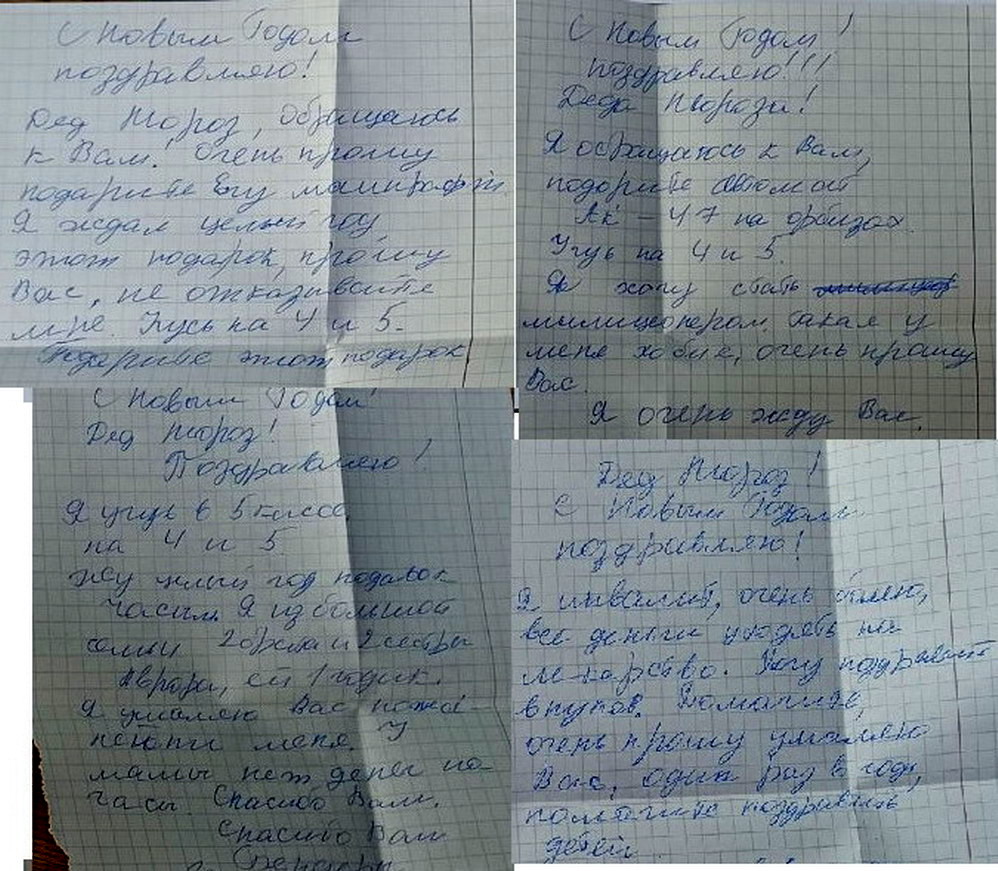 С Новым Годом
поздравляю!
Дед Мороз, обращаюсь
к Вам! Очень прошу
подарите Егу
Я ждал целый год
этот подарок, прошу
Вас, не отказывайте
мне. Учусь на 4 и 5.
Подарите этот подарок
С Новым Годом!
поздравляю!!!
Деда Мороза!
Я обращаюсь к Вам,
подарите автомат
АК-47 на орбизах.
Учусь на 4 и 5.
Я хочу стать
милиционером. Такая у
меня хобие, очень прошу
Вас.
Я очень жду Вас.
С Новым Годом!
Дед Мороз!
Поздравляю!
Я учусь в 5 классе
на 4 и 5.
жду целый год подарок
часы. Я из большой
семьи 2 брата и 2 сестры
Аврора, ей 1 годик.
Я умоляю Вас
меня. У
мамы нет денег на
часы. Спасибо Вам.
Спасибо Вам
Дед Мороз!
С Новым Годом
поздравляю!
Я инвалит, очень болею,
все деньги уходять на
лекарство. Хочу поздравит
внуков.
очень прошу умаляю
Вас, один раз в году,
помогите поздравить
детей